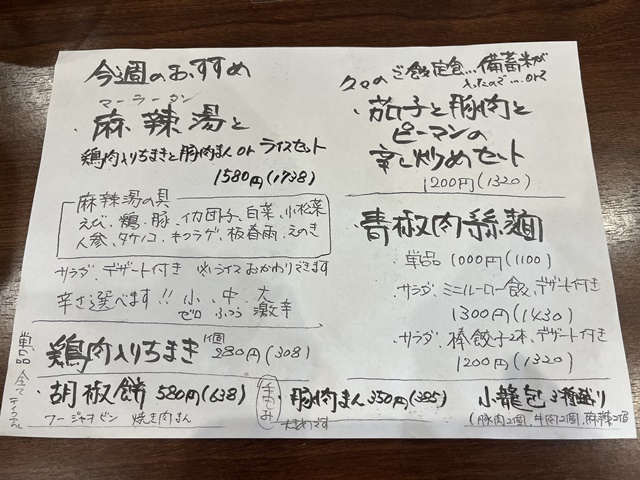 今週のおすすめ
マーラータン
・麻辣湯と
鶏肉入りちまきと豚肉まん or ライスセット
1580円(1738)
麻辣湯の具
えび、鶏、豚、イカ団子、白菜、小松菜
人参、タケノコ、キクラゲ、板春雨、えのき
サラダ、デザート付き ※ライスおかわりできます
辛さ選べます!! 小、中、大
ゼロ ふつう 激辛
久々のご飯定食...備蓄米が
入ったので...
・茄子と豚肉と
ピーマンの
辛し炒めセット
1200円(1320)
・青椒肉絲麺
・単品 1000円(1100)
・サラダ、ミニルーロー飯、デザート付き
1300円(1430)
・サラダ、棒餃子2本、デザート付き
1200円(1320)
単品 全て
鶏肉入りちまき 1個 280円(308)
・胡椒餅 580円(638)
フージャオビン 焼き肉まん
手包み
豚肉まん 350円(385)
大きめです
小籠包 3種盛り
(豚肉2個、牛肉2個、麻辣2個